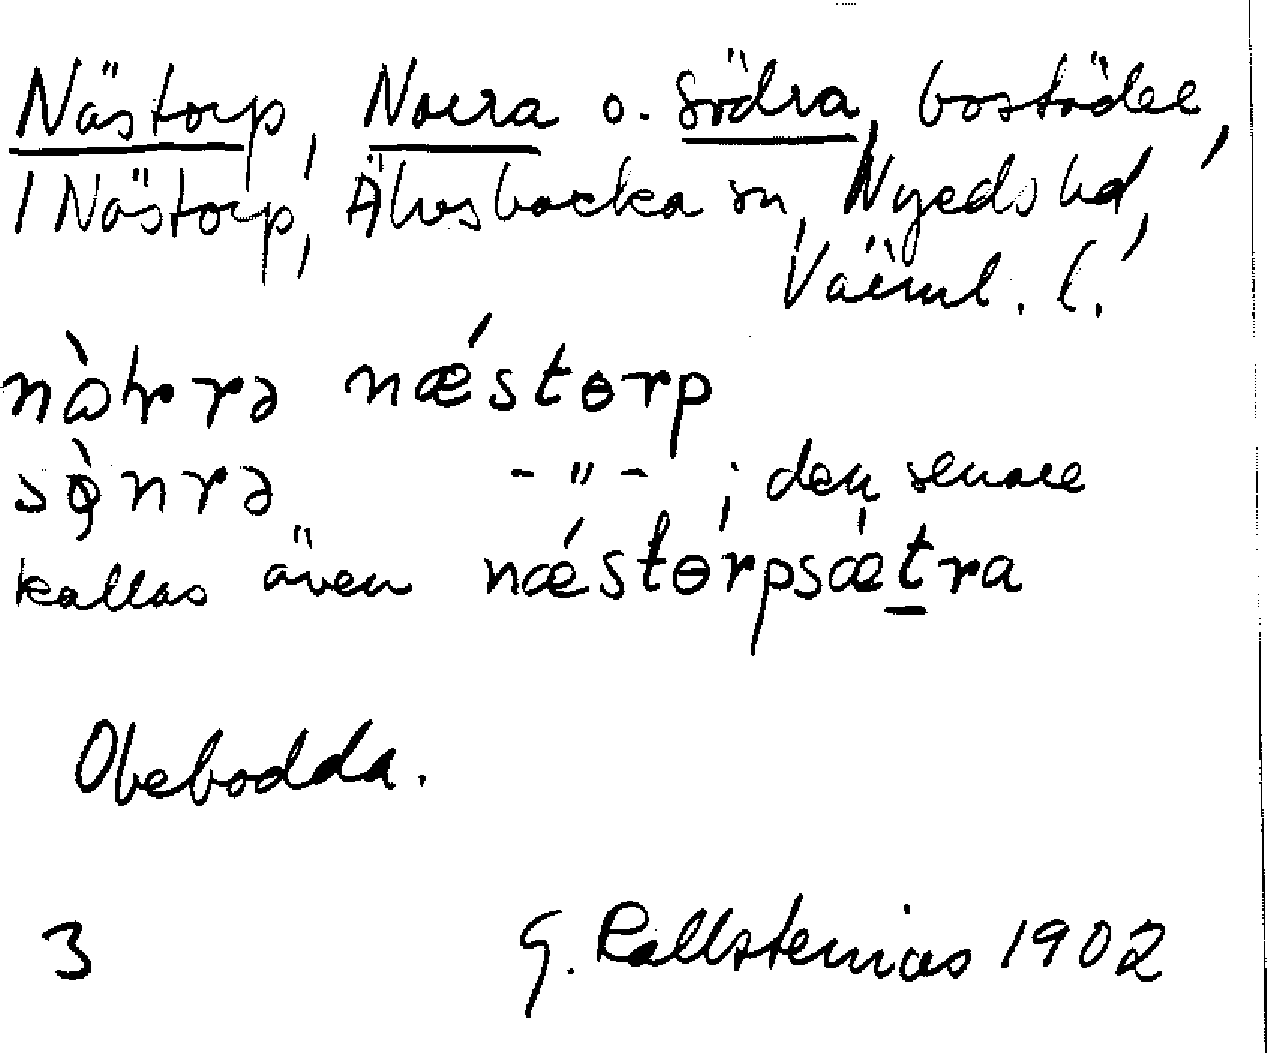 Nästorp, Norra o. Södra, bostäder,
/ Nästorp, Älvsbacka sn, Nyeds hd,
Värml. l.
nὼrrə næ´stɵrp
sø̀nrə -"- ; den senare
kallas även næ´stɵrpsæt̲ra
Obebodda.
3 G. Kallstenius 1902